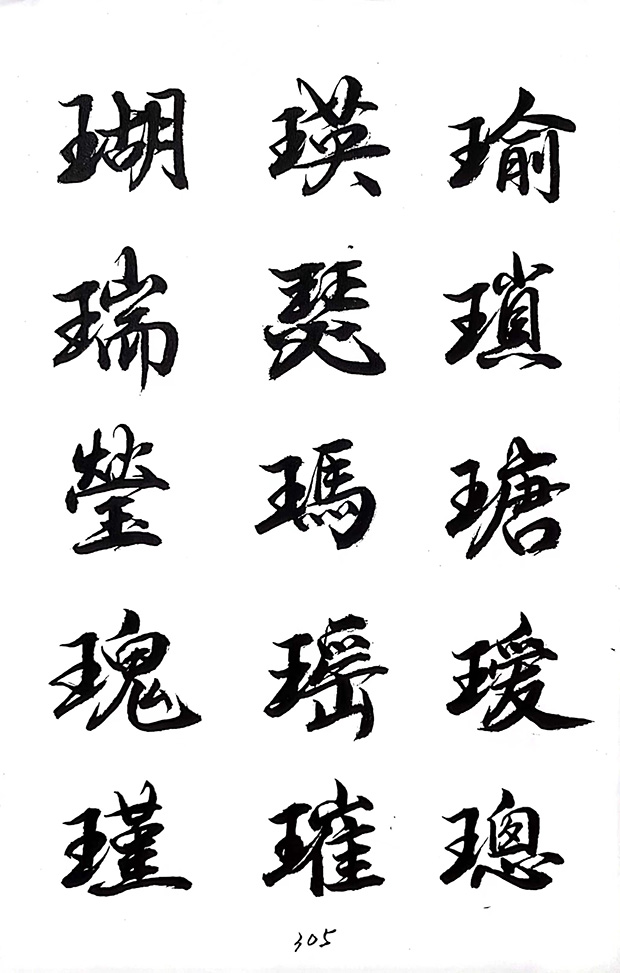 瑚瑛瑜
瑞瑟瑣
瑩瑪瑭
瑰瑤瑷
瑾璀璁
305